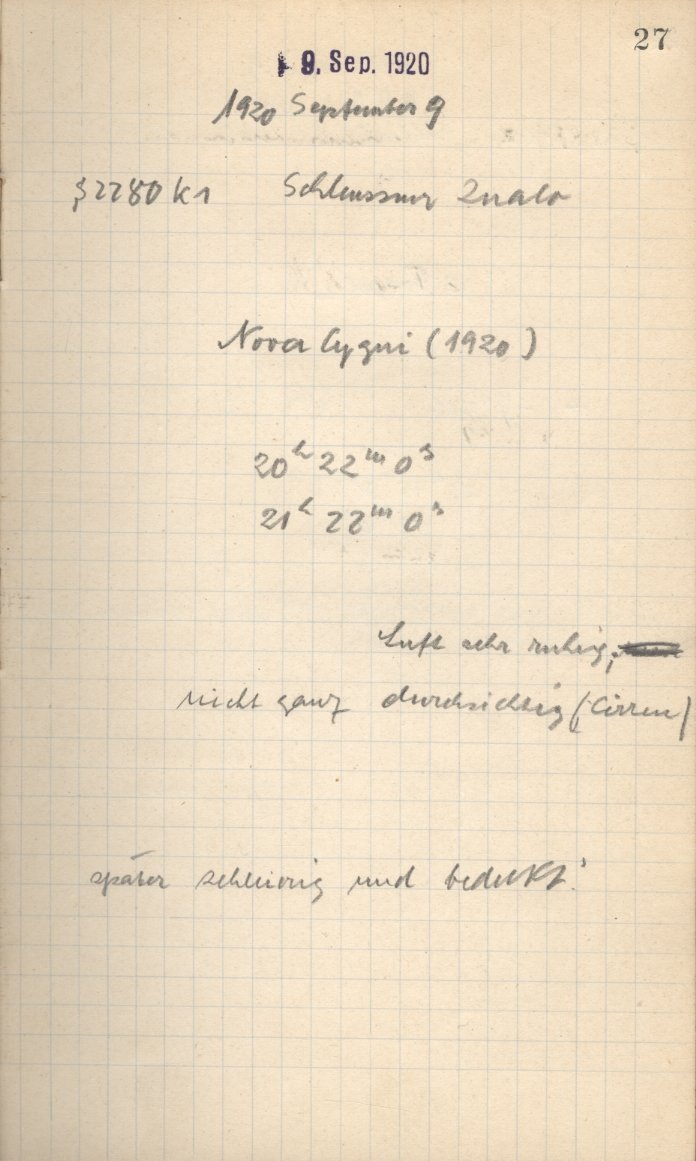 27
9. Sep. 1920
1920 September 9
2280 k1 Schleussner
Nova Cygni (1920)
20h 22m 0s
21h 22m 0s
Luft sehr ruhig;
nicht ganz durchsichtig (Cirren)
später schleierig und bedeckt.